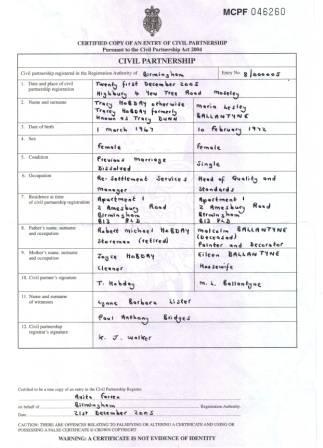 MCPF 046260
CERTIFIED COPY OF AN ENTRY OF CIVIL PARTNERSHIP
Pursuant to the Civil Partnership Act 2004
CIVIL PARTNERSHIP
Civil partnership registered in the Registration Authority of Birmingham Entry No. 8/000005
1. Date and place of civil partnership registration
Twenty first December 2005
Highbury 4 Yew Tree Road Moseley
2. Name and surname
Tracy HOBDAY otherwise
Tracey HOBDAY formerly
known as Tracy DUNN
Maria Lesley
BALLANTYNE
3. Date of birth
1 March 1967
10 February 1972
4. Sex
Female
Female
5. Condition
Previous Marriage
Dissolved
Single
6. Occupation
Re-Settlement Services
Manager
Head of Quality and
Standards
7. Residence at time of civil partnership registration
Apartment 1
2 Amesbury Road
Birmingham
Apartment 1
2 Amesbury Road
Birmingham
8. Father's name, surname and occupation
Robert Michael HOBDAY
Storeman (retired)
Malcolm BALLANTYNE
(Deceased)
Painter and Decorator
9. Mother's name, surname and occupation
Joyce HOBDAY
Cleaner
Eileen BALLANTYNE
Housewife
10. Civil partner's signature
T. Hobday
M. L. Ballantyne
11. Name and surname of witnesses
Lynne Barbara Lister
Paul Anthony Bridges
12. Civil partnership registrar's signature
K. J. Walker
Certified to be a true copy of an entry in the Civil Partnership Register.
Anita
on behalf of Birmingham Registration Authority.
Date 21st December 2005
CAUTION: THERE ARE OFFENCES RELATING TO FALSIFYING OR ALTERING A CERTIFICATE AND USING OR
POSSESSING A FALSE CERTIFICATE © CROWN COPYRIGHT
WARNING: A CERTIFICATE IS NOT EVIDENCE OF IDENTITY